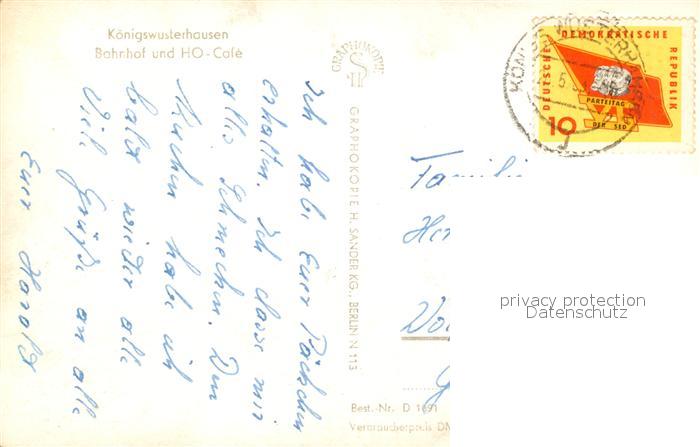 Königswusterhausen
Bahnhof und HO-Café
Ich habe Euer Päckchen
erhalten. Ich lasse mir
alles schmecken. Den
Kuchen habe ich
bald wieder alle
Viele Grüße an alle
Euer Harald
GRAPHOKOPIE
GRAPHOKOPIE H. SANDER KG., BERLIN N 113
DEUTSCHE DEMOKRATISCHE REPUBLIK
VI
PARTEITAG
DER SED
10
Familie
privacy protection
Datenschutz
Best.-Nr. D 1691
Verbraucherpreis DM